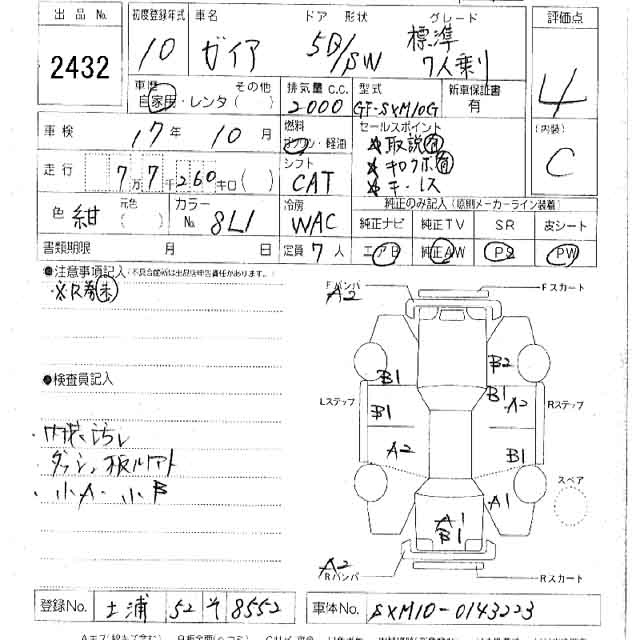 出品 No. 初度登録年式 車名 ドア 形状 グレード 評価点
2432 10 ガイア 5D/SW 標準
7人乗り
4
車歴 その他 排気量 C.C. 型式 新車保証書
自家用・レンタ( ) 2000 GF-SXM10G 有
(内装)
C
車検 17年 10月 燃料 セールスポイント
ガソリン・軽油 取説有
走行 7万7千260キロ( ) シフト
CAT キーレス
色 紺 元色( ) カラーNo. 8L1 冷房 WAC 純正のみ記入(原則メーカーライン装着)
純正ナビ 純正TV SR 皮シート
書類期限 月 日 定員 7人 エアB 純正AW PS PW
●注意事項記入(不具合箇所は出品店申告責任があります。)
※R券未
Fバンパ A2 Fスカート
●検査員記入
B1 B2
Lステップ B1 B1 A2 Rステップ
A2 B1
内装汚れ
小A、小B
スペア
A1
A1
B1
A2
Rバンパ Rスカート
登録No. 土浦 52 そ 8552 車体No. SXM10-0143223